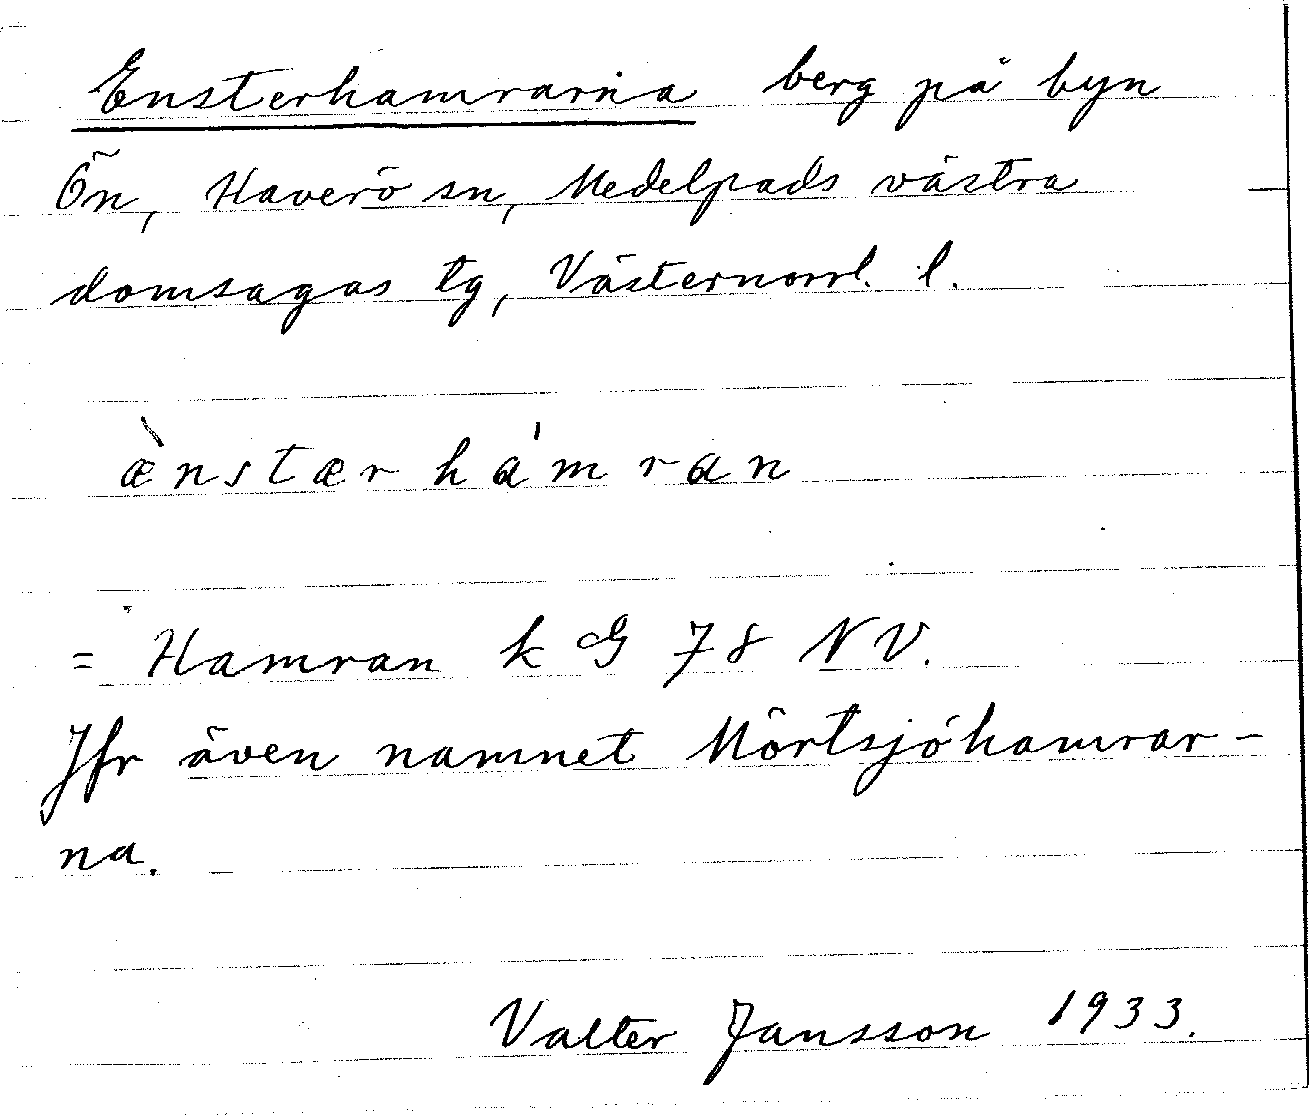 Ensterhamrarna berg på byn
Ön, Haverö sn, Medelpads västra
domsagas tg, Västernorrl. l.
æ̀nstær hámran
= Hamran k G 78 NV.
Jfr även namnet Mörtsjöhamrar-
na.
Valter Jansson 1933.